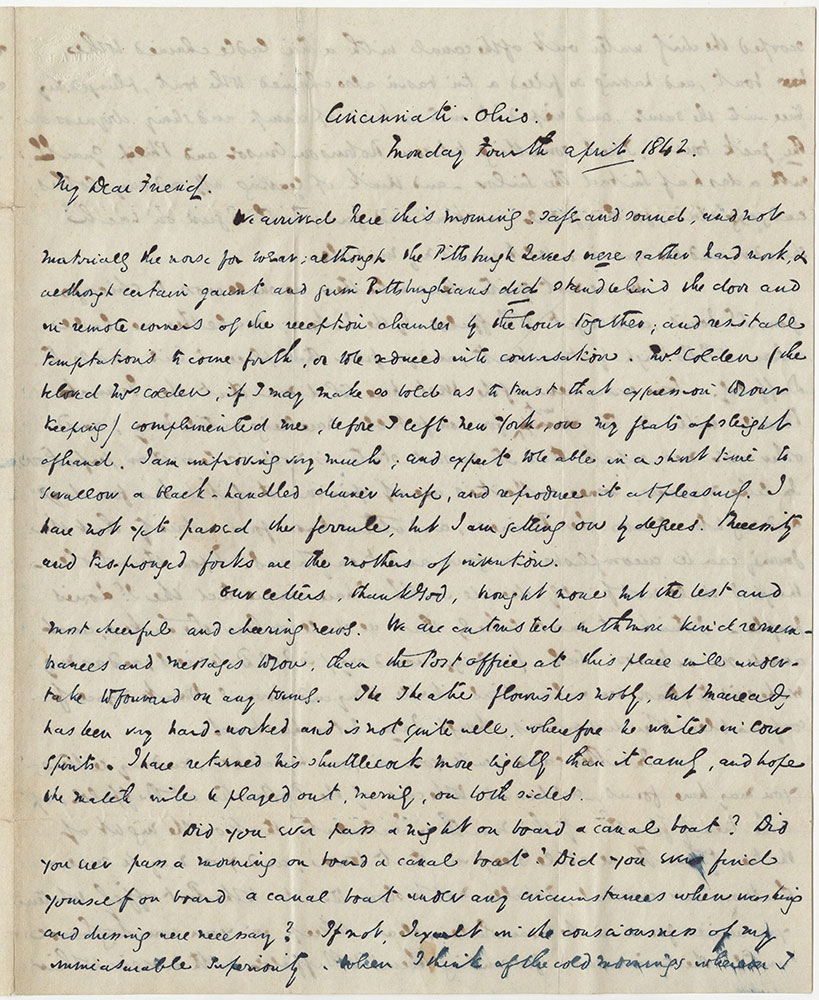 Cincinnati. Ohio.
Monday Fourth April 1842.
My Dear Friend.
We arrived here this morning safe and sound, and not
materially the worse for wear; although the Pittsburgh Levees were rather hard work, &
although certain gaunt and grim Pittsburghians did stand behind the door and
in remote corners of the reception chamber by the hour together; and resist all
temptations to come forth, or to be seduced into conversation. Mrs Colden (the
beloved Mrs Colden, if I may make so bold as to trust that expression to your
keeping) complimented me, before I left New York, on my feats of sleight
of hand. I am improving very much; and expect to be able in a short time to
swallow a black-handled dinner knife, and reproduce it at pleasure. I
have not yet passed the ferrule, but I am getting on by degrees. Necessity
and two-pronged forks are the mothers of invention.
Our letters, thank God, brought none but the best and
most cheerful and cheering news. We are entrusted with more kind remem-
brances and messages to you, than the Post office at this place will under-
take to forward on any terms. The Theatre flourishes nobly, but Macready
has been very hard-worked and is not quite well, wherefore he writes in low
Spirits. I have returned his shuttlecock more lightly than it came, and hope
the match will be played out, merrily, on both sides.
Did you ever pass a night on board a canal boat? Did
you ever pass a morning on board a canal boat? Did you ever find
yourself on board a canal boat under any circumstances when washing
and dressing were necessary? If not, I exult in the consciousness of my
immeasurable superiority. When I think of the cold mornings whereon I